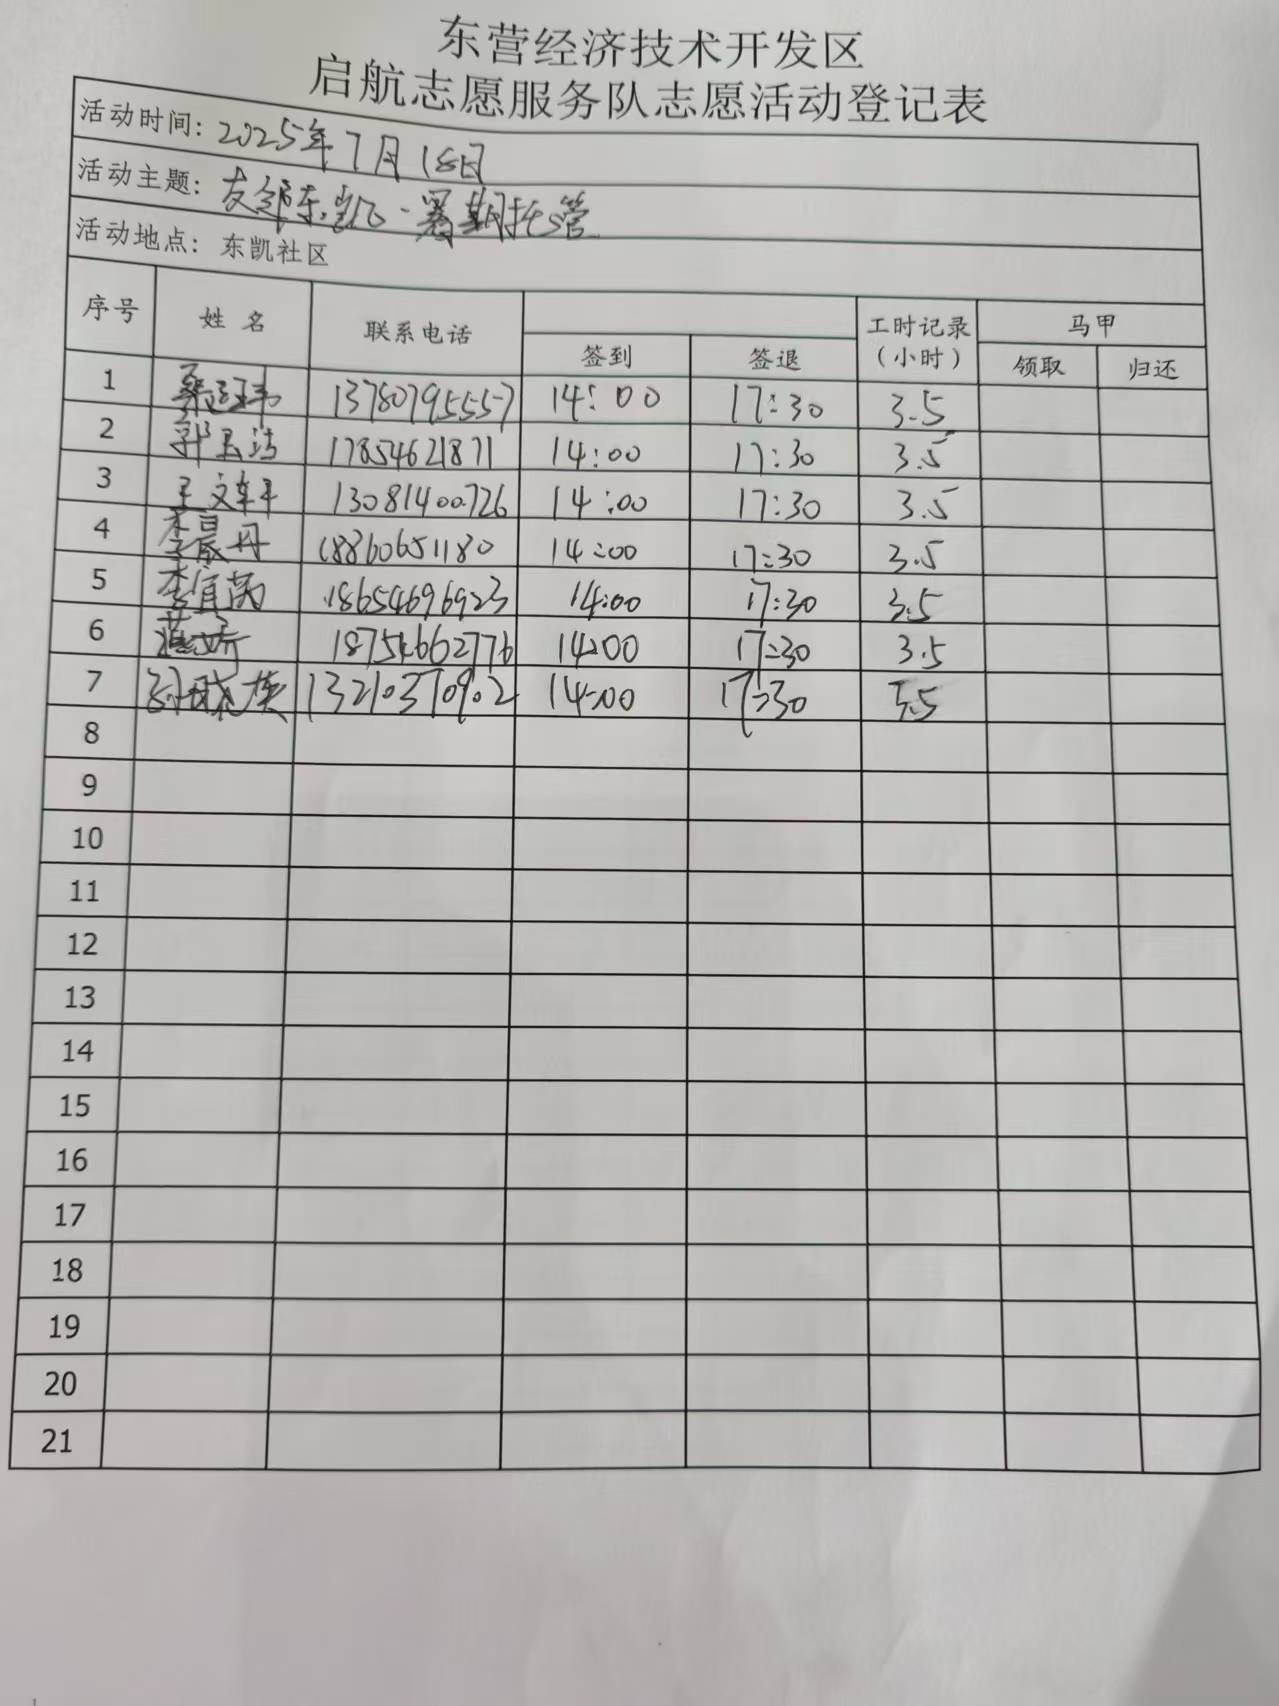 东营经济技术开发区
启航志愿服务队志愿活动登记表
活动时间: 2025年7月18日
活动主题: 友邻东凯·暑期托管
活动地点: 东凯社区
序号 姓名 联系电话 签到 签退 工时记录(小时) 马甲 领取 归还
1 13780795557 14:00 17:30 3.5
2 17854621871 14:00 17:30 3.5
3 13081400726 14:00 17:30 3.5
4 李晨丹 18860651180 14:00 17:30 3.5
5 李宜芮 18654696923 14:00 17:30 3.5
6 18754662776 14:00 17:30 3.5
7 13210370902 14:00 17:30 3.5
8
9
10
11
12
13
14
15
16
17
18
19
20
21